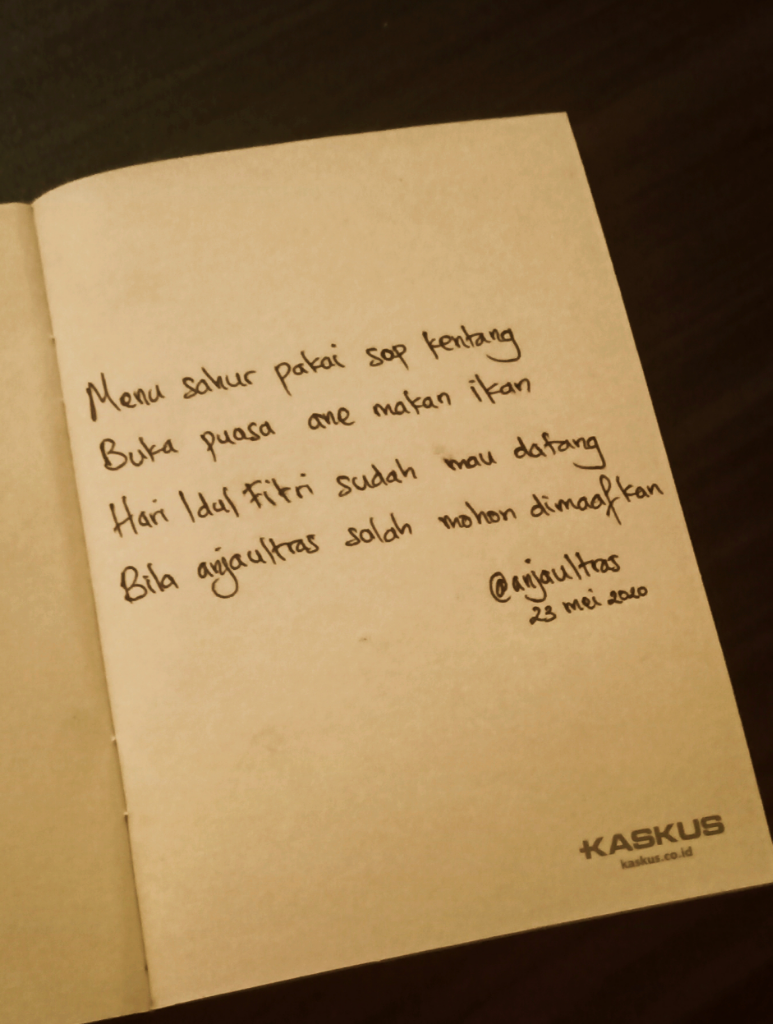 Menu sahur pakai sop kentang
Buka puasa ane makan ikan
Hari Idul Fitri sudah mau datang
Bila anjaultras salah mohon dimaafkan
@anjaultras
23 mei 2020
KASKUS
kaskus.co.id